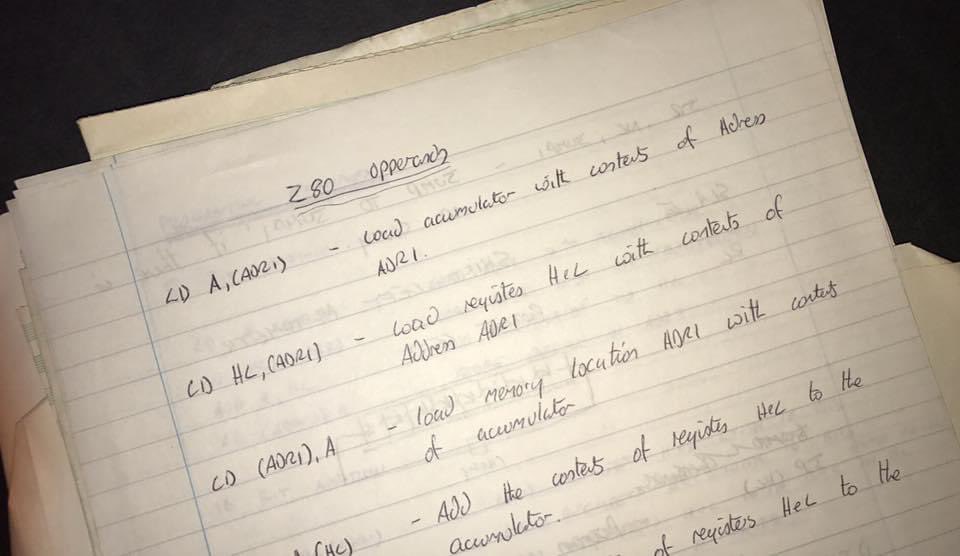 Z80 opperands
LD A,(ADR1) - Load accumulator with contents of Adress
ADR1.
LD HL,(ADR1) - Load registers H&L with contents of
Address ADR1
LD (ADR1),A - load memory location ADR1 with contents
of accumulator
(HL) - Add the contents of register H&L to the
accumulator.
of registers H&L to the